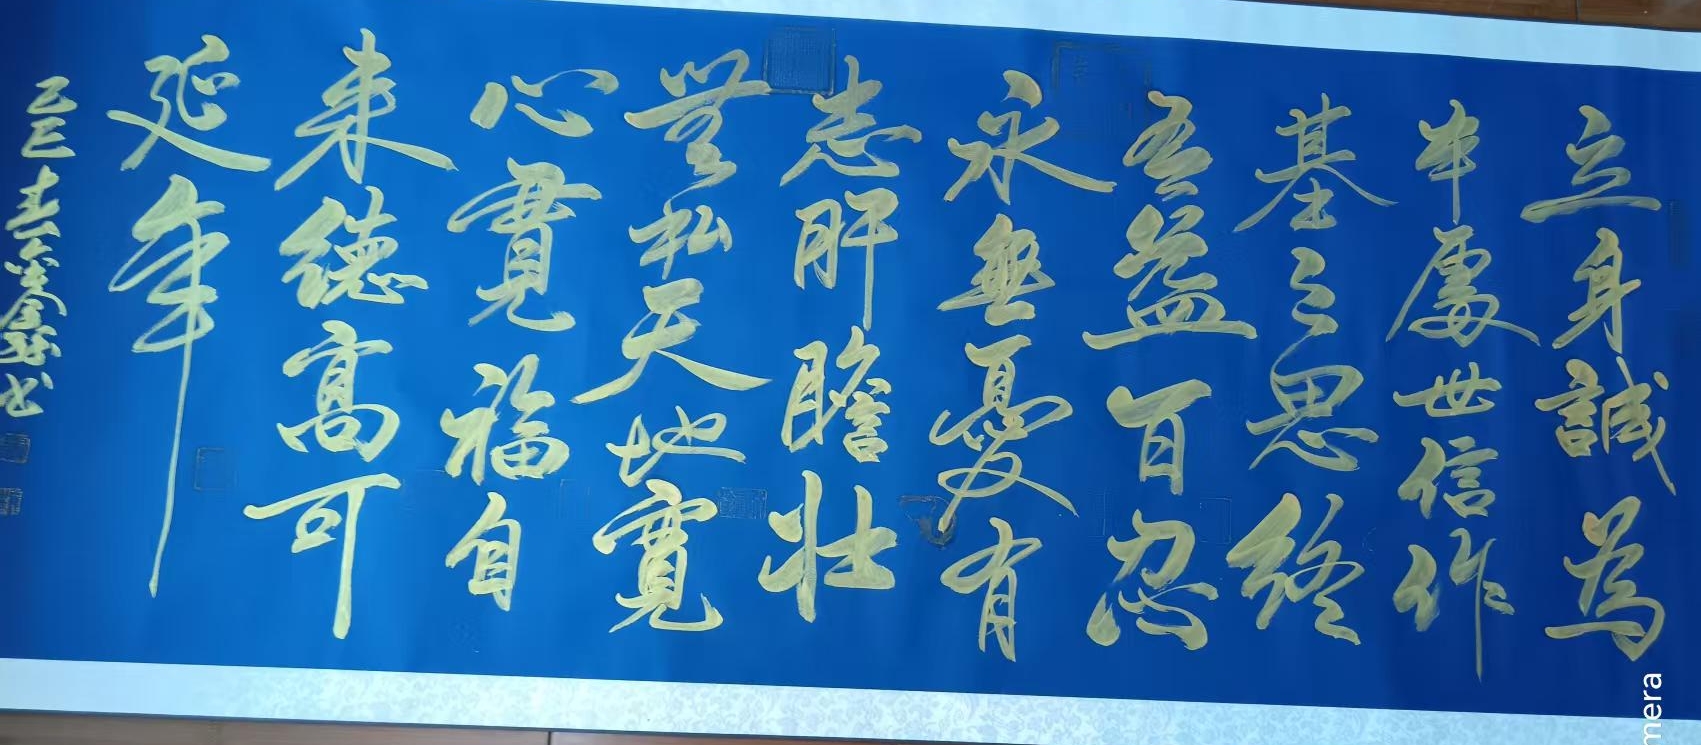 立身誠為
本處世信作
基三思終
吾益百忍
永無憂有
志肝膽壯
無私天地寬
心寬福自
来德高可
延年
乙巳春
书
mera